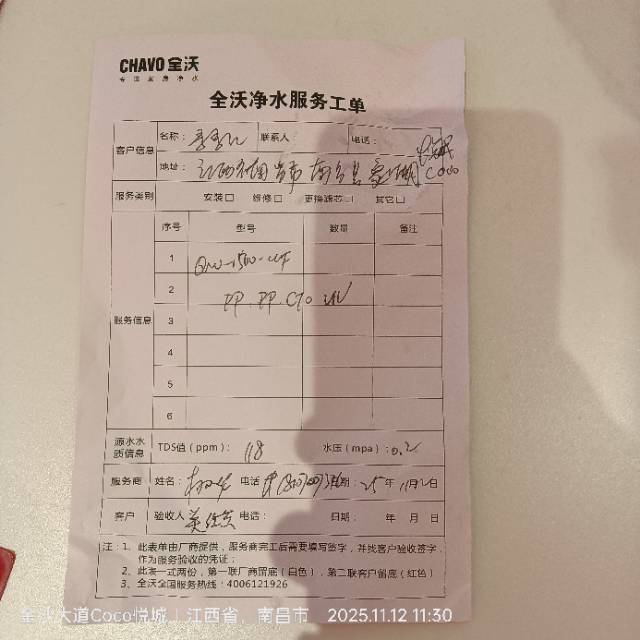 CHAVO 全沃
专注家用净水
全沃净水服务工单
客户信息 名称： 联系人： 电话：
地址：江西省南昌市南昌县 COCO
服务类别 安装□ 维修□ 更换滤芯□ 其它□
服务信息 序号 型号 数量 备注
1
2 PP PP CTO
3
4
5
6
源水水质信息 TDS值（ppm）：118 水压（mpa）：0.2
服务商 姓名： 电话 日期：25年11月12日
客户 验收人 电话： 日期： 年 月 日
注：1、此表单由厂商提供，服务商完工后需要填写签字，并找客户验收签字，
作为服务验收的凭证；
2、此表一式两份，第一联厂商留底（白色），第二联客户留底（红色）
3、全沃全国服务热线：4006121926
全沃大道Coco悦城 | 江西省，南昌市 2025.11.12 11:30